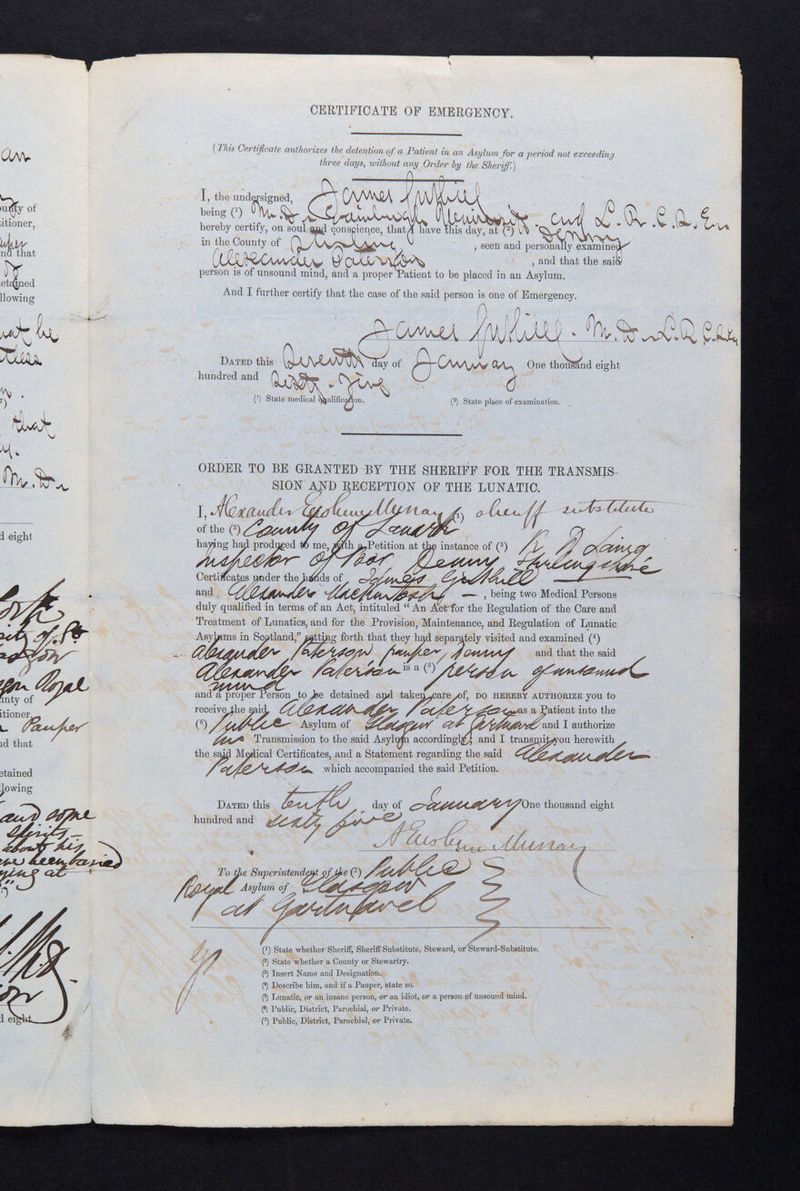 an
ounty of
titioner,
nd that
etained
llowing
that he
that
M.D.
d eight
unty of
itioner
Pauper
nd that
etained
lowing
and some
spirits –
about his
d eight
CERTIFICATE OF EMERGENCY.
(This Certificate authorizes the detention of a Patient in an Asylum for a period not exceeding
three days, without any Order by the Sheriff.)
I, the undersigned, James Guthill
being (¹) M.D. Edinburgh University and L.R.C.S. Ed
hereby certify, on soul and conscience, that I have this day, at (²) Denny
in the County of Stirling, seen and personally examined
Alexander Paterson, and that the said
person is of unsound mind, and a proper Patient to be placed in an Asylum.
And I further certify that the case of the said person is one of Emergency.
James Guthill. M.D. L.R.C.S.
DATED this Seventh day of January One thousand eight
hundred and Sixty-Five
(¹) State medical qualification. (²) State place of examination.
ORDER TO BE GRANTED BY THE SHERIFF FOR THE TRANSMIS-
SION AND RECEPTION OF THE LUNATIC.
I, Alexander Erskine Murray (¹) sheriff substitute
of the (²) County of Lanark
having had produced to me, with a Petition at the instance of (³) R D Laing
Inspector of Poor Denny Stirlingshire
Certificates under the hands of James Guthill
and Alexander Mackintosh –, being two Medical Persons
duly qualified in terms of an Act, intituled "An Act for the Regulation of the Care and
Treatment of Lunatics, and for the Provision, Maintenance, and Regulation of Lunatic
Asylums in Scotland," setting forth that they had separately visited and examined (⁴)
Alexander Paterson pauper Denny and that the said
Alexander Paterson is a (⁵) person of unsound
mind
and a proper Person to be detained and taken care of, DO HEREBY AUTHORIZE you to
receive the said Alexander Paterson as a Patient into the
(⁶) Public Asylum of Glasgow at Gartnavel and I authorize
his Transmission to the said Asylum accordingly; and I transmit you herewith
the said Medical Certificates, and a Statement regarding the said Alexander
Paterson which accompanied the said Petition.
DATED this tenth day of January One thousand eight
hundred and sixty five
A Erskine Murray
To the Superintendent of the (⁷) Public
Royal Asylum of Glasgow
at Gartnavel
(¹) State whether Sheriff, Sheriff-Substitute, Steward, or Steward-Substitute.
(²) State whether a County or Stewartry.
(³) Insert Name and Designation.
(⁴) Describe him, and if a Pauper, state so.
(⁵) Lunatic, or an insane person, or an idiot, or a person of unsound mind.
(⁶) Public, District, Parochial, or Private.
(⁷) Public, District, Parochial, or Private.